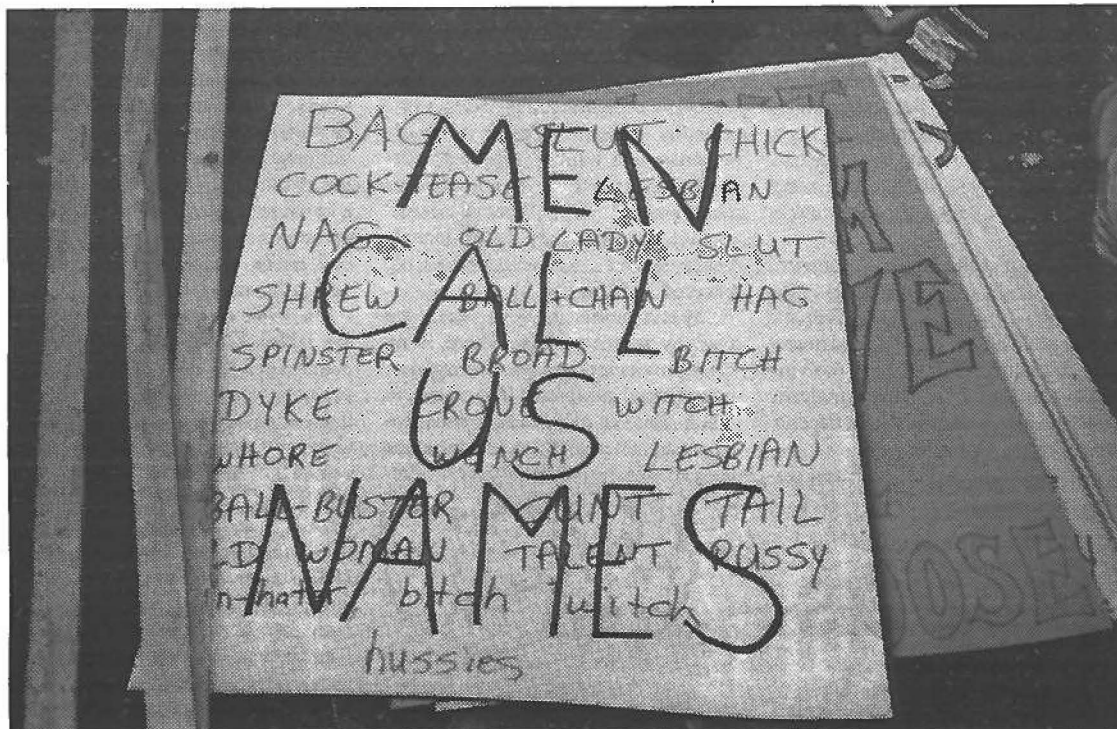 MEN
CALL
US
NAMES
BAG SLUT CHICK
COCK-TEASE LESBIAN
NAG OLD LADY SLUT
SHREW BALL+CHAIN HAG
SPINSTER BROAD BITCH
DYKE CRONE WITCH
WHORE WENCH LESBIAN
BALL-BUSTER CUNT TAIL
LD WOMAN TALENT PUSSY
n-hater, bitch witch
hussies
VE
OOSE